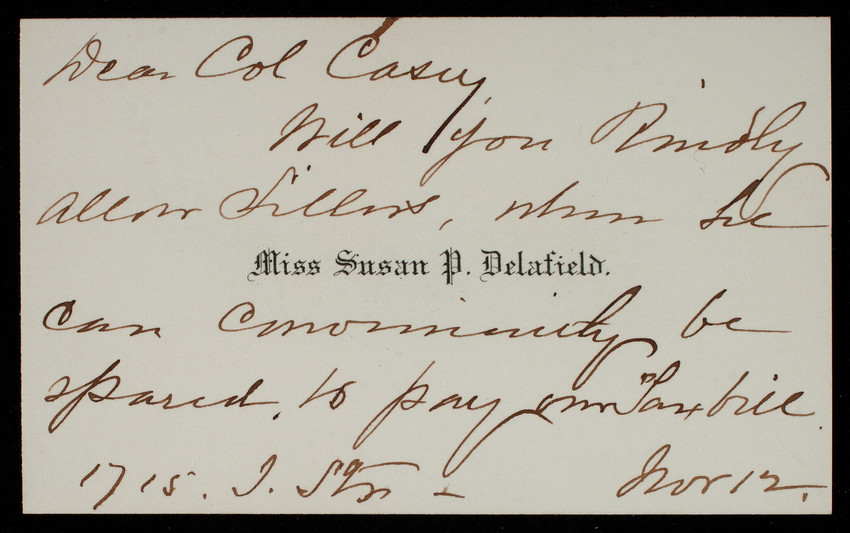 Dear Col Casey,
Will you Kindly
allow Sillers, when he
Miss Susan P. Delafield.
can conveniently be
spared, to pay our Tax bill.
1715. I. Str –
Nov 12.